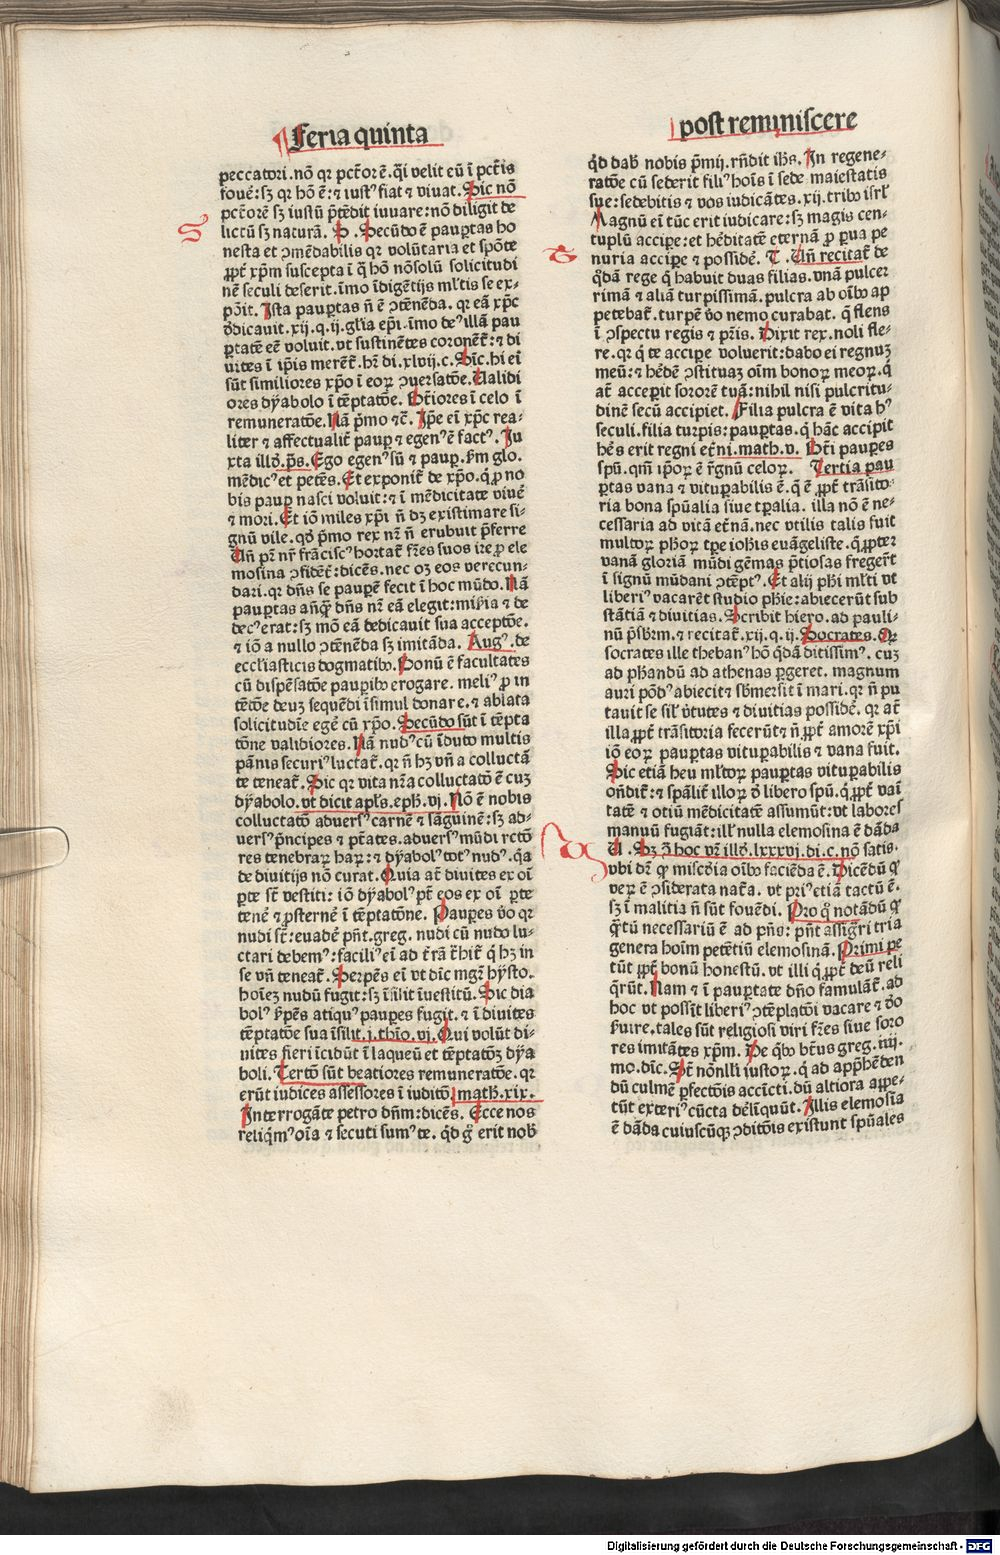 Feria quinta
peccatori.nō qꝛ pctōrē.q̄i velit cū ī pctīs
fouē:sꝫ qꝛ hō ē:⁊ iustꝰ fiat ⁊ viuat.Sic nō
pctōrē sꝫ iustū p̄tēdit iuuare:nō diligit de
lictū sꝫ naturā. S .Secūdo ē paupꝑtas ho
nesta et ꝯmēdabilis qꝛ volūtaria et spōte
ꝓpt̄ xp̄m suscepta ī q̄ hō nōsolū solicitudi
nē seculi deserit.īmo īdigētijs ml̄tis se ex-
pōit.Ista paupꝑtas n̄ ē ꝯtēnēda.qꝛ eā xp̄c
dicauit.xij.q.ij.gl̄ia ep̄i.īmo deꝰ illā pau
ꝑtatē eē voluit.vt sustinētes coronēt̄:⁊ di
uites ī ip̄is merēt̄.hꝛ̄ di.xlvij.c.Sic.hi ei̅
sūt similiores xp̄o ī eoꝝ ꝯuersatōe.Ualidi
ores dy̋abolo ī tēptatōe. Bt̄iores ī celo ī
remuneratōe.Nā p̄mo ⁊c̄.Ip̄e ei̅ xp̄c rea-
liter ⁊ affectualit̄ pauꝑ ⁊ egenꝰ ē factꝰ.Iu
xta illō.ps̄.Ego egenꝰ sū ⁊ pauꝑ.ẜm glo.
mēdicꝰ et petēs.Et exponit̄ de xp̄o.q̄ ꝓ no
bis pauꝑ nasci voluit:⁊ ī mēdicitate viuē
⁊ mori.Et iō miles xp̄i n̄ dꝫ existimare si-
gnū vile.qd̄ p̄mo rex nꝛ̄ n̄ erubuit p̄ferre
Un̄ pꝛ̄ nꝛ̄ frāciscꝰ hortat̄ fr̄es suos ire ꝓ ele
mosina ꝯfidēt̄:dicēs.nec oꝫ eos verecun-
dari.qꝛ dn̄s se pauꝑē fecit ī hoc mūdo.Nā
pauꝑtas añq̄ dn̄s nꝛ̄ eā elegit:miſia ⁊ de
decꝰ erat:sꝫ mō eā dedicauit sua acceptōe.
⁊ iō a nullo ꝯtēnēda sꝫ imitāda. Augꝰ.de
eccl̄iasticis dogmatibꝰ.Bonū ē facultates
cū dispēsatōe pauꝑibꝰ erogare. meliꝰ ꝓ in
tētōe deuꝫ sequēdi īsimul donare.⁊ ablata
solicitudīe egē cū xp̄o.Secūdo sūt ī tēpta
tōne validiores.Nā nudꝰ cū īduto multis
pānis securiꝰ luctat̄.qꝛ n̄ hꝫ vn̄ a colluctā
te teneat̄.Sic qꝛ vita nr̄a colluctatō ē cuꝫ
dy̋abolo.vt dicit apl̄s.eph̄.vj.Nō ē nobis
colluctatō aduersꝰ carnē ⁊ sāguinē:sꝫ ad-
uersꝰ p̄ncipes ⁊ pt̄ates.aduersꝰ mūdi rctō
res tenebraꝝ haꝝ:⁊ dy̋abolꝰ totꝰ nudꝰ.q̄a
de diuitijs nō curat.Quia at̄ diuites ex oī
ꝑte st̄ vestiti:iō dy̋abolꝰ pt̄ eos ex oī ꝑte
tenē ⁊ ꝓsternē ī tēptatōne.Pauꝑes v̊o qꝛ
nudi st̄:euadē pn̄t.greg. nudi cū nudo lu-
ctari debemꝰ:faciliꝰ ei̅ ad t̄rā t̄hit̄ q̄ hꝫ in
se vn̄ teneat̄.Serpēs ei̅ vt dic̄ mgꝛ̄ hy̋sto.
hoīeꝫ nudū fugit:sꝫ īsilit īuestitū.Sic dia
bolꝰ ſpēs atiqꝰ pauꝑes fugit.⁊ ī diuites
tēptatōe sua īsilit.i.thīo.vj.Qui volūt di-
uites fieri īcidūt ī laqueū et tēptatōꝫ dy̋a
boli.Tertō sūt beatiores remuneratōe.qꝛ
erūt iudices assessores ī iuditō.math̄.xix.
Interrogāte petro dn̄m:dicēs. Ecce nos
reliq̄mꝰ oīa ⁊ secuti sumꝰ te. qd̄ g̊ erit nob̄
post reminiscere
qd̄ dab̄ nobis p̄mij.rn̄dit ih̄s.In regene-
ratōe cū sederit filiꝰ hoīs ī sede maiestatis
sue:sedebitis ⁊ vos iudicātes.xij.tribꝰ isrl̄
Magnū ei̅ tūc erit iudicare:sꝫ magis cen-
tuplū accipe:et hēditatē eternā ꝓ ꝑua pe
nuria accipe ⁊ possidē. T .Un̄ recitat̄ de
qd̄ā rege q̄ habuit duas filias.vnā pulcer
rimā ⁊ aliā turpissimā.pulcra ab oībꝰ ap
petebat̄.turpē v̊o nemo curabat. q̄ flens
ī ꝯspectu regis ⁊ pr̄is. Dixit rex.noli fle-
re.qꝛ q̄ te accipe voluerit:dabo ei regnuꝫ
meū:⁊ hēdē ꝯstituaꝫ oīm bonoꝝ meoꝝ.q̄
at̄ acceꝑit sororē tuā:nihil nisi pulcritu-
dinē secū accipiet. Filia pulcra ē vita hꝰ
seculi.filia turpis:pauꝑtas.q̄ hāc accipit
hēs erit regni et̄ni.math.v. Bt̄i pauꝑes
spū.qm̄ ip̄oꝝ ē r̄gnū celoꝝ. Tertia pau
ꝑtas vana ⁊ vituꝑabilis ē.q̄ ē ꝓpt̄ trāsito-
ria bona spūalia siue tꝑalia. illa nō ē ne-
cessaria ad vitā et̄nā.nec vtilis talis fuit
multoꝝ ph̄oꝝ tꝑe ioh̄is euāgeliste.q̄ ꝓpter
vanā gloriā mūdi gēmas p̄tiosas fregert̄
ī signū mūdani ꝯtēptꝰ.Et alij ph̄i ml̄ti vt
liberiꝰ vacarēt studio ph̄ie:abiecerūt sub
stātiā ⁊ diuitias.Scribit hiero.ad pauli-
nū p̄sbrm̄.⁊ recitat̄.xij.q.ij.Socrates.Qꝛ
socrates ille thebanꝰ hō qd̄ā ditissimꝰ. cuꝫ
ad ph̄andū ad athenas ꝑgeret. magnum
auri pōdꝰ abiecit ⁊ sb̄mersit ī mari.qꝛ n̄ pu
tauit se sil̄ v̊tutes ⁊ diuitias possidē.qꝛ at̄
illa ꝓpt̄ trāsitoria fecerūt ⁊ n̄ ꝓpt̄ amorē xp̄i
iō eoꝝ pauꝑtas vituꝑabilis ⁊ vana fuit.
Sic etiā heu ml̄toꝝ pauꝑtas vituꝑabilis
on̄dit̄:⁊ spālit̄ illoꝝ q̄ libero spū.q̄ ꝓpt̄ vaī
tatē ⁊ otiū mēdicitatē assumūt:vt labores
manuū fugiāt:ill̄ nulla elemosina ē dāda
U .Sꝫ ꝯ̄ hoc vꝛ̄ illō.lxxxvj.di.c.nō satis.
vbi dꝛ̄ ꝙ misc̄dia oībꝰ faciēda ē.Dicēdū ꝙ
veꝝ ē ꝯsiderata nat̄a. vt priꝰ etiā tactū ē.
sꝫ ī malitia n̄ sūt fouēdi. Pro q̊ notādū ꝙ
q̄tū necessariū ē ad pn̄s:pn̄t assigr̄i tria
genera hoīm petētiū elemosinā.Primi pe
tūt ꝓpt̄ bonū honestū.vt illi q̄ ꝓpt̄ deū reli
q̄rūt.Nam ⁊ ī pauꝑtate dn̄o famulāt̄.ad
hoc vt possīt liberiꝰ ꝯtēplatōi vacare ⁊ dō
ẜuire.tales sūt religiosi viri fr̄es siue soro
res imitātes xp̄m. De qbꝰ bt̄us greg.iiij.
mo.dic̄.St̄ nōnlli iustoꝝ.q̄ ad app̄hēden
dū culmē ꝑfectōis accīcti.dū altiora appe-
tūt exteriꝰ cūcta delīquūt.Illis elemosīa
ē dāda cuiuscūqꝫ ꝯditōis existunt spūales
Digitalisierung gefördert durch die Deutsche Forschungsgemeinschaft - DFG